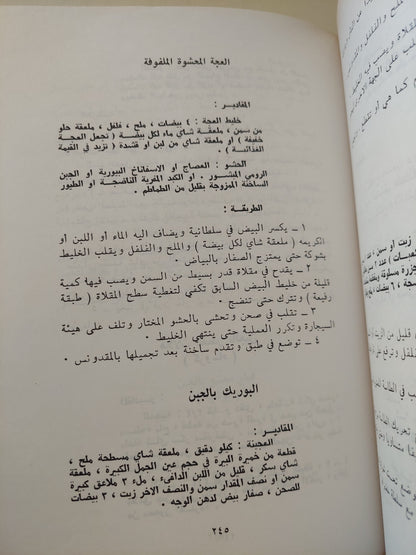 العجة المحشوة الملفوفة
المقادير :
خليط العجة : ٤ بيضات ، ملح ، فلفل ، ملعقة حلو
من سمن ، ملعقة شاي ماء لكل بيضة ( تجعل العجة
خفيفة ) او ملعقة شاي من لبن او قشدة ( تزيد في القيمة
الغذائية ) .
الحشو : العصاج او الاسفاناخ البيورية او الجبن
الرومي المبشور . او الكبد المفرية الناضجة . او الطيور
الساخنة الممزوجة بقليل من الطماطم .
الطريقة :
١ ــ يكسر البيض في سلطانية ويضاف اليه الماء أو اللبن أو
الكريمه ( ملعقة شاي لكل بيضة ) والملح والفلفل ويقلب الخليط
بشوكة حتى يمتزج الصفار بالبياض .
٢ ــ يقدح في مقلاة قدر بسيط من السمن و يصب فيها كمية
قليلة من خليط البيض السابق تكفي لتغطية سطح المقلاة ( طبقة
رفيعة ) وتترك حتى تنضج .
٣ ــ تقلب في صحن وتحشى بالحشو المختار وتلف على هيئة
السيجارة وتكرر العملية حتى ينتهي الخليط .
٤ ــ توضع في طبق وتقدم ساخنة بعد تجميلها بالمقدونس .
البوريك بالجبن
المقادير :
العجينة : كيلو دقيق ، ملعقة شاي مسطحة ملح ،
قطعة من خميرة البيرة في حجم عين الجمل الكبيرة ، ملعقة
شاي سكر ، قليل من اللبن الدافىء ، ملء ٣ ملاعق كبيرة
سمن او نصف المقدار سمن والنصف الاخر زيت ، ٣ بيضات
للصحن ، صفار بيض لدهن الوجه .
٢٤٥